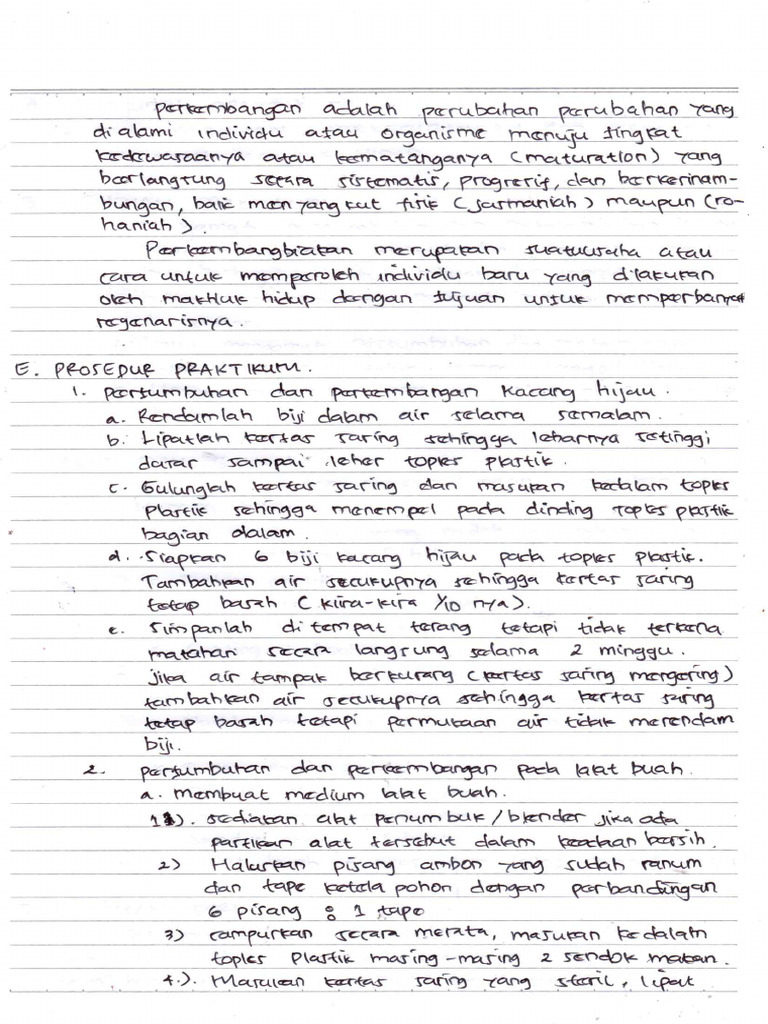 Perkembangan adalah perubahan perubahan yang
di alami individu atau organisme menuju tingkat
kedewasaanya atau kematanganya (maturation) yang
berlangsung secara sistematis, progresif, dan berkesinam-
bungan, baik menyangkut fisik (jasmaniah) maupun (ro-
haniah).
Perkembangbiakan merupakan suatu usaha atau
cara untuk memperoleh individu baru yang dilakukan
oleh makhluk hidup dengan tujuan untuk memperbanyak
regenarisnya.
E. PROSEDUR PRAKTIKUM.
1. Pertumbuhan dan perkembangan kacang hijau.
a. Rendamlah biji dalam air selama semalam.
b. Lipatlah kertas saring sehingga leharnya setinggi
dasar sampai leher toples plastik.
c. Gulunglah kertas saring dan masukan kedalam toples
plastik sehingga menempel pada dinding toples plastik
bagian dalam.
d. Siapkan 6 biji kacang hijau pada toples plastik.
Tambahkan air secukupnya sehingga kertas saring
tetap basah (kiira-kira 1/10 nya).
e. Simpanlah di tempat terang tetapi tidak terkena
matahari secara langsung selama 2 minggu.
jika air tampak berkurang (kertas saring mengering)
tambahkan air secukupnya sehingga kertas saring
tetap basah tetapi permukaan air tidak merendam
biji.
2. pertumbuhan dan perkembangan pada lalat buah.
a. membuat medium lalat buah.
1). sediakan alat penumbuk/blender jika ada
pastikan alat tersebut dalam keadaan bersih.
2) Haluskan pisang ambon yang sudah ranum
dan tape ketela pohon dengan perbandingan
6 pisang : 1 tape
3) campurkan secara merata, masukan kedalam
toples plastik masing-masing 2 sendok makan.
4.). Masukan kertas saring yang steril, lipat